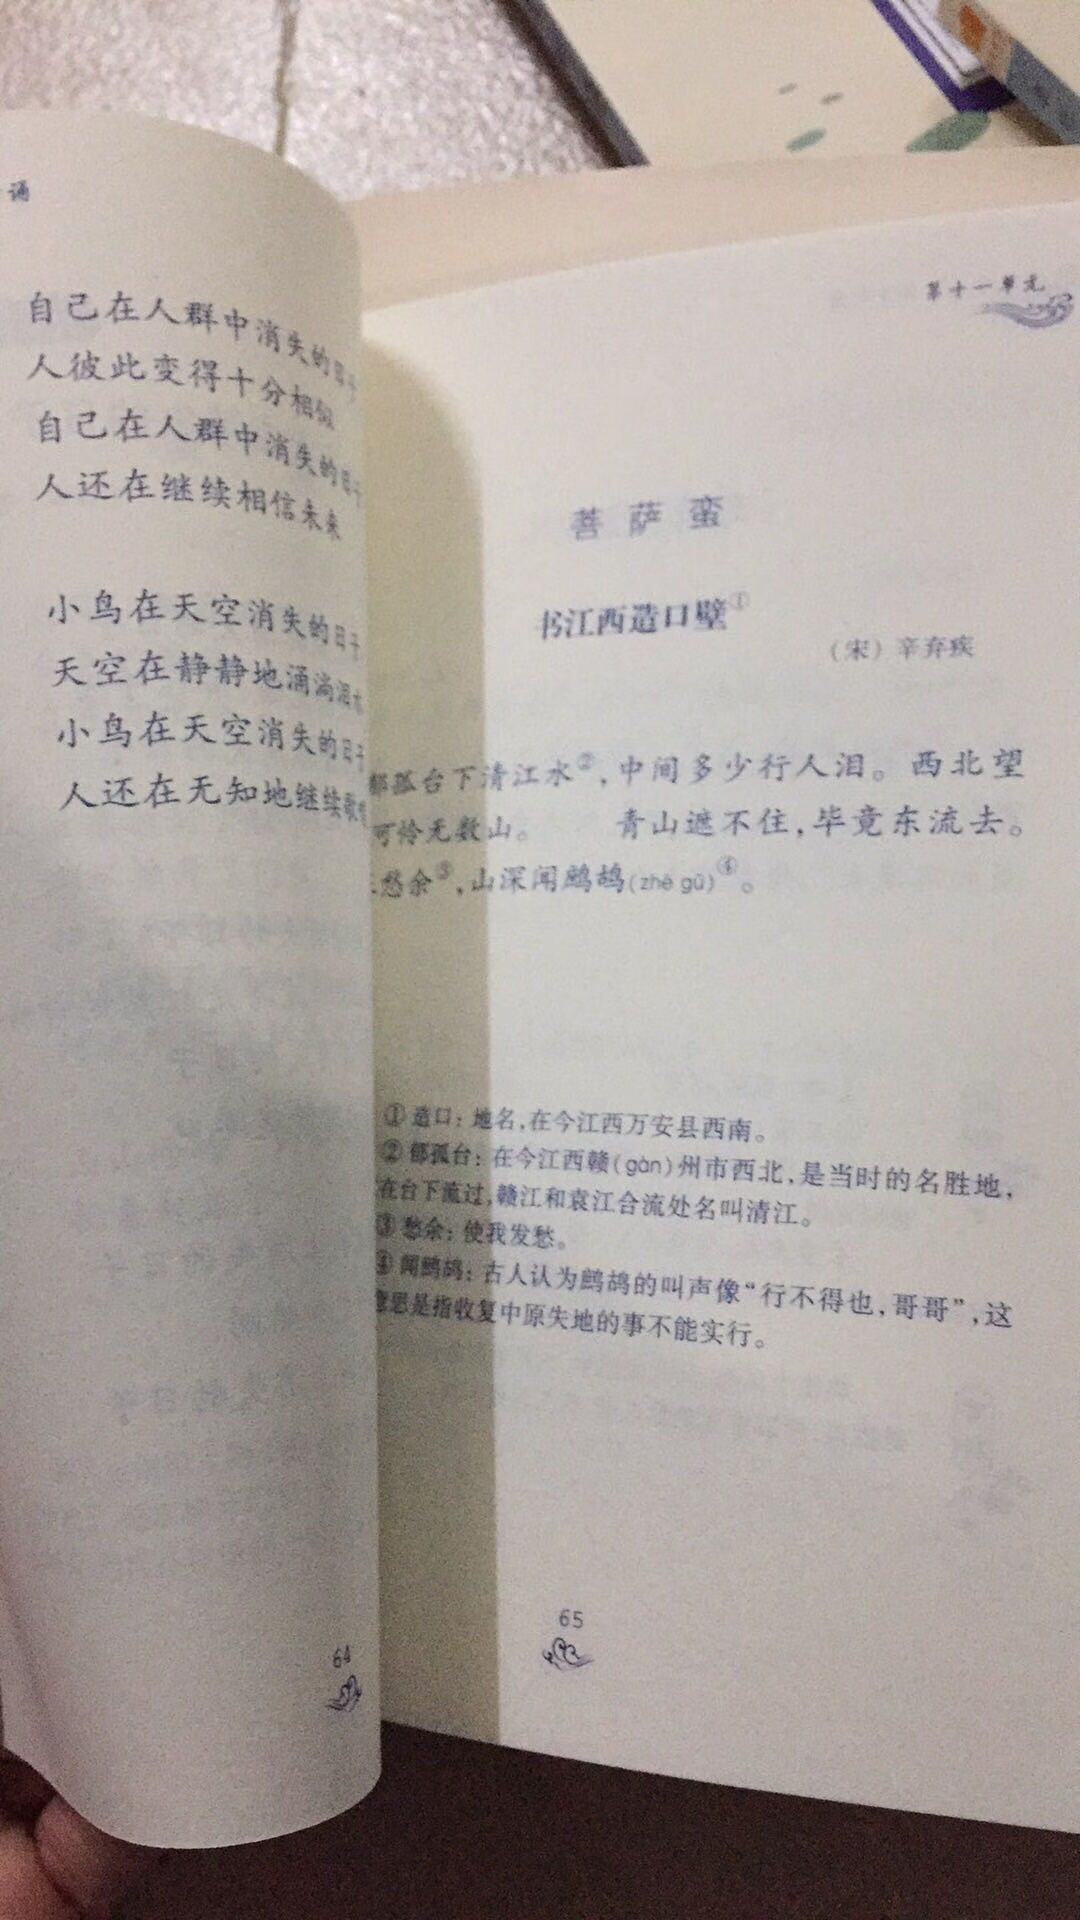 诵
自己在人群中消失的日子
人彼此变得十分相似
自己在人群中消失的日子
人还在继续相信未来
小鸟在天空消失的日子
天空在静静地涌淌泪水
小鸟在天空消失的日子
人还在无知地继续歌
64
第十一单元
菩萨蛮
书江西造口壁①
（宋）辛弃疾
郁孤台下清江水②，中间多少行人泪。西北望
可怜无数山。 青山遮不住，毕竟东流去。
愁余③，山深闻鹧鸪(zhè gū)④。
①造口：地名，在今江西万安县西南。
②郁孤台：在今江西赣(gàn)州市西北，是当时的名胜地，
在台下流过，赣江和袁江合流处名叫清江。
③愁余：使我发愁。
④闻鹧鸪：古人认为鹧鸪的叫声像“行不得也，哥哥”，这
意思是指收复中原失地的事不能实行。
65